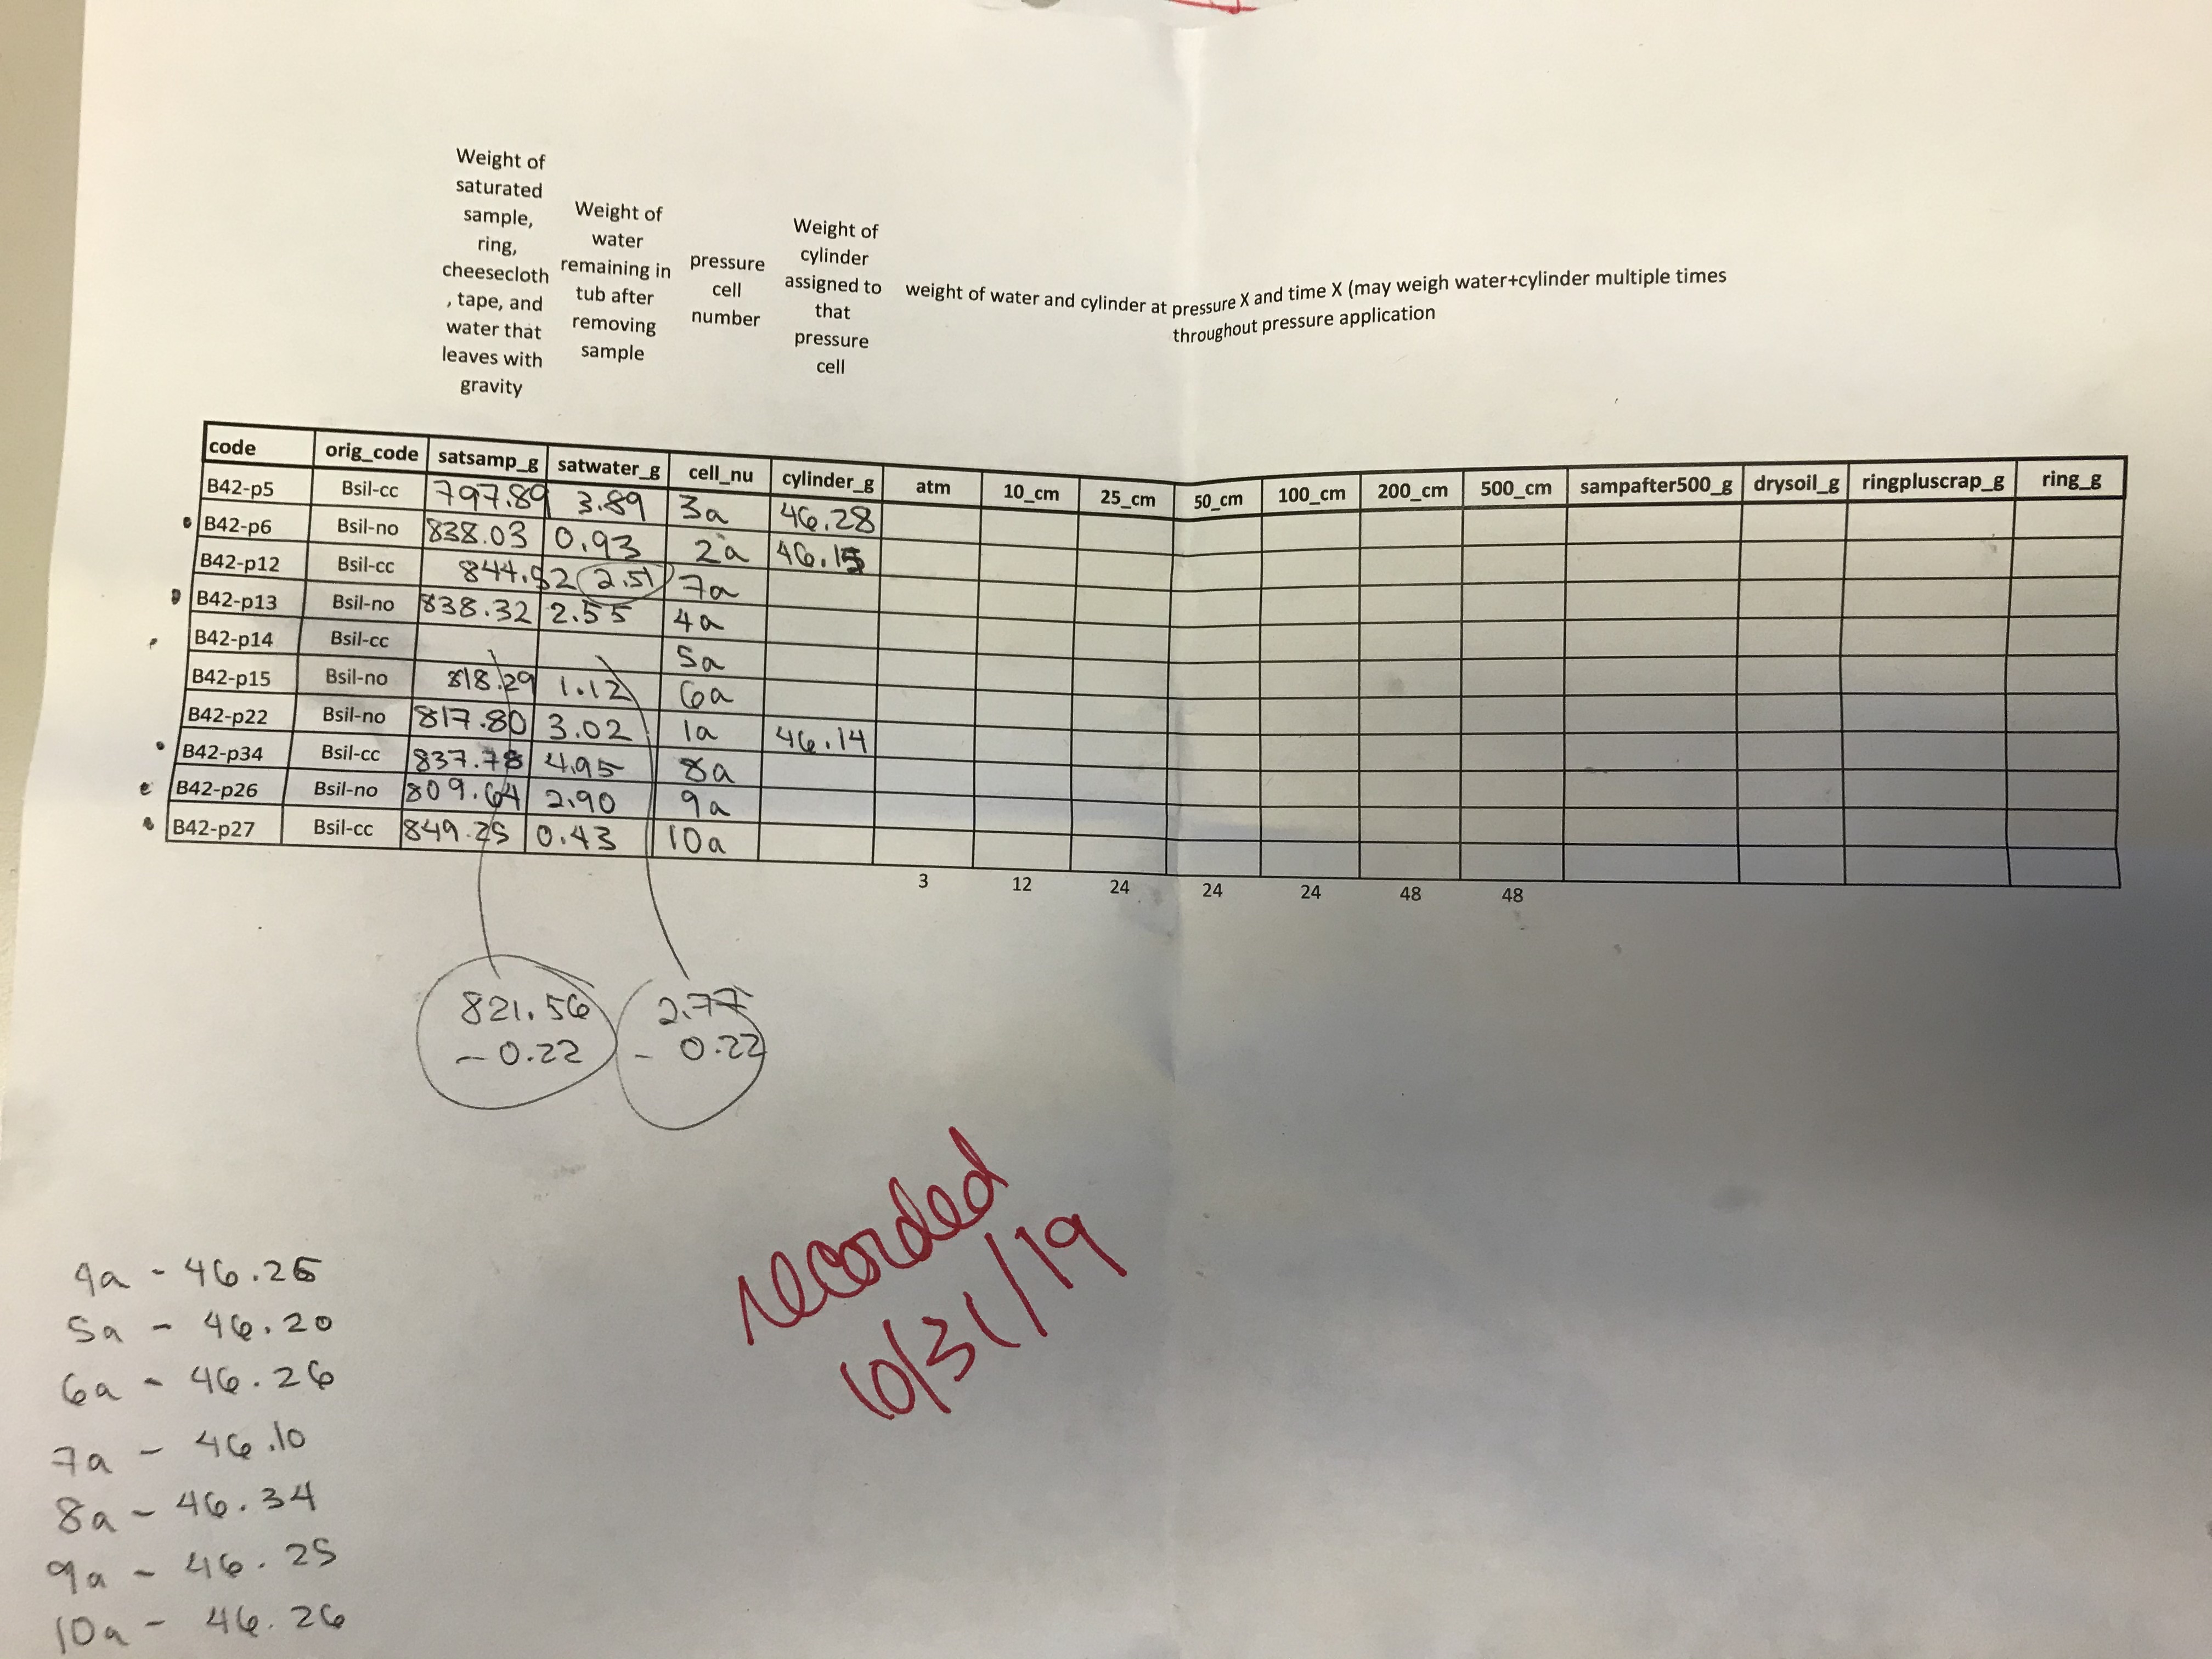 Weight of
saturated
sample,
ring,
cheesecloth
, tape, and
water that
leaves with
gravity
Weight of
water
remaining in
tub after
removing
sample
pressure
cell
number
Weight of
cylinder
assigned to
that
pressure
cell
weight of water and cylinder at pressure X and time X (may weigh water+cylinder multiple times
throughout pressure application
code orig_code satsamp_g satwater_g cell_nu cylinder_g atm 10_cm 25_cm 50_cm 100_cm 200_cm 500_cm sampafter500_g drysoil_g ringpluscrap_g ring_g
B42-p5 Bsil-cc 797.89 3.89 3a 46.28
B42-p6 Bsil-no 838.03 0.93 2a 46.15
B42-p12 Bsil-cc 2.51 7a
B42-p13 Bsil-no 838.32 2.55 4a
B42-p14 Bsil-cc 5a
B42-p15 Bsil-no 818.29 1.12 6a
B42-p22 Bsil-no 817.80 3.02 1a 46.14
B42-p34 Bsil-cc 837.78 4.95 8a
B42-p26 Bsil-no 809.64 2.90 9a
B42-p27 Bsil-cc 849.25 0.43 10a
3 12 24 24 24 48 48
821.56 2.77
- 0.22 - 0.22
recorded
10/31/19
4a - 46.25
5a - 46.20
6a - 46.26
7a - 46.10
8a - 46.34
9a - 46.25
10a - 46.26